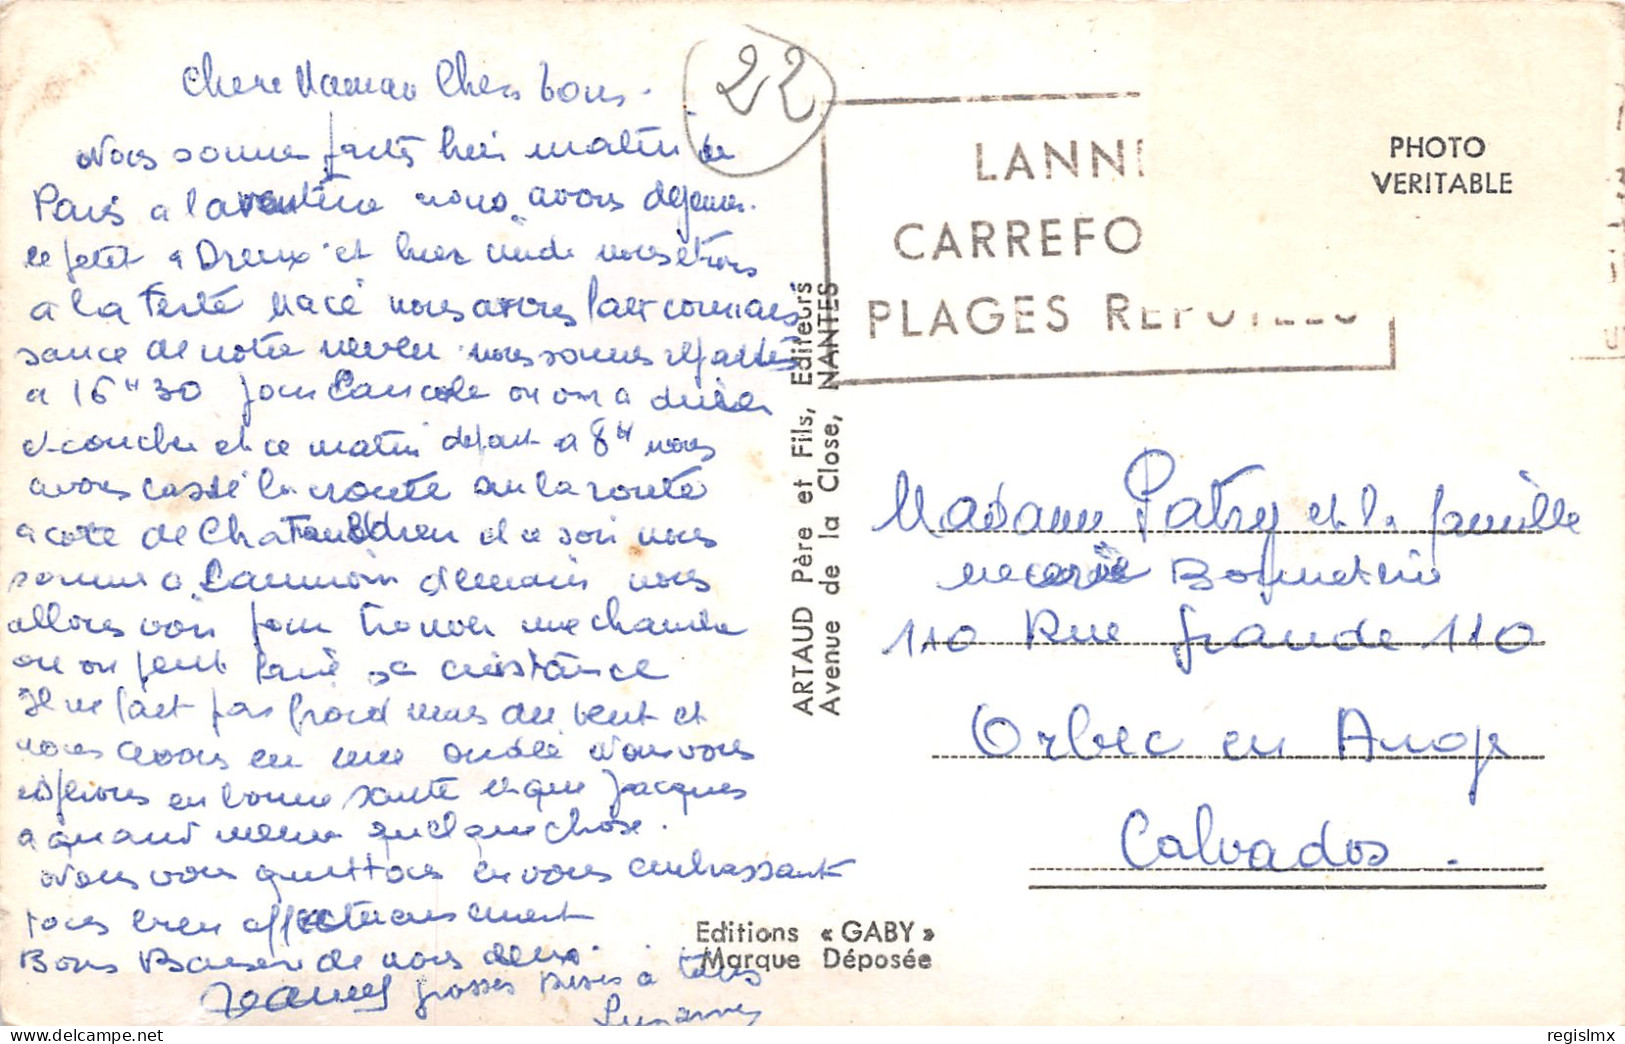 Chere Maman Chers tous.
Nous sommes partis hier matin de
Paris à l'aventure nous avons déjeuner.
le petit a Dreux et hier midi nous étions
a la Ferté Macé nous avons fait connais
sance de notre neveu nous sommes repartis
a 16H30 pour Pancole ou on a diner
et coucher et ce matin depart a 8H nous
avons cassé la croute sur la route
a coté de Chatelaudren et ce soir nous
somme a Lannion demain nous
allons voir pour trouver une chambre
ou on peut faire sa
Il ne fait pas froid mais du vent et
nous avons eu une ondée Nous vous
espérons en bonne santé et que Jacques
a quand meme quelque chose.
Nous vous quittons en vous embrassant
tous bien affectueusement
Bons Baisers de nous deux.
grosses bises à tous
Suzanne
22
LANNI
CARREFO
PLAGES REPUTEES
PHOTO
VERITABLE
ARTAUD Père et Fils, Editeurs
Avenue de la Close, NANTES
Madame Patry et la famille
Bonnetrie
110 Rue grande 110
Orbec en Auge
Calvados.
Editions « GABY »
Marque Déposée
regislmx